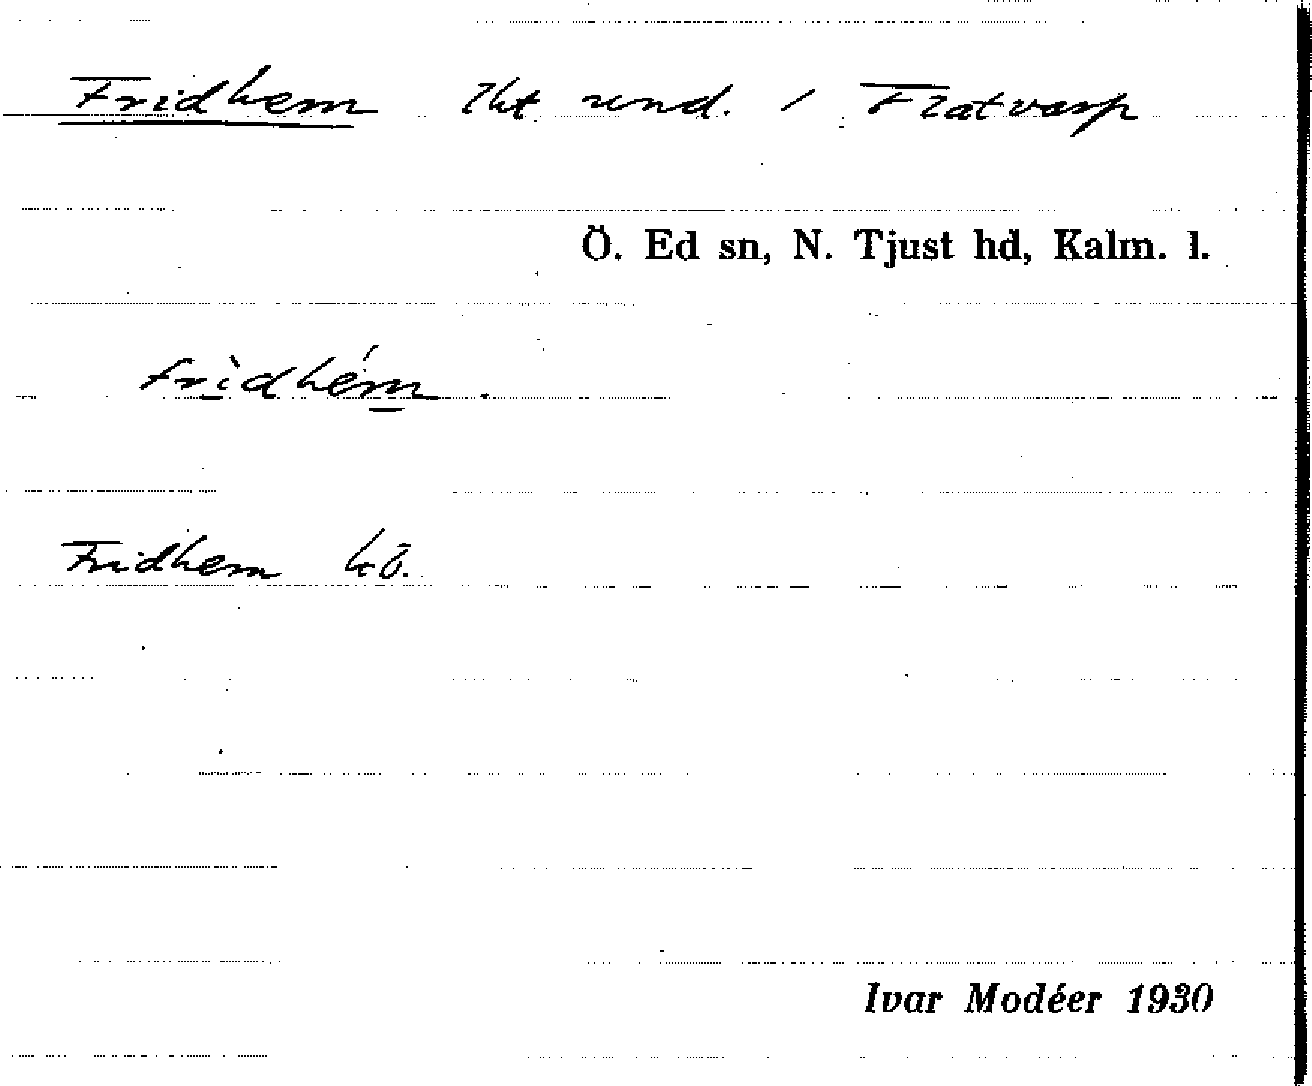 Fridhem lht und. / Flatvarp
Ö. Ed sn, N. Tjust hd, Kalm. l.
frìdhém.
Fridhem kō.
Ivar Modéer 1930